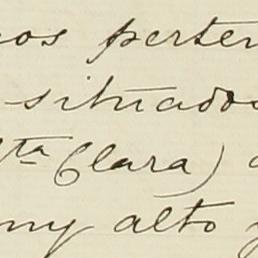 nos perten
situados
Sta Clara) a
muy alto y